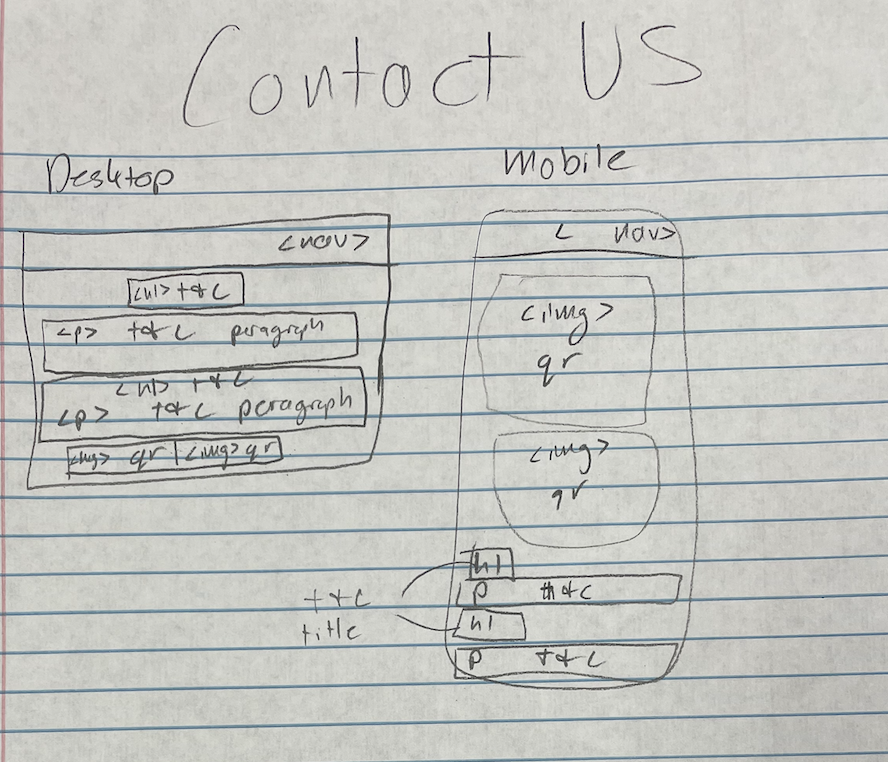 Contact US
Desktop
<nav>
<h1> t&C
<p> t&C paragraph
<h1> t&C
<p> t&C paragraph
<img> qr | <img> qr
Mobile
< nav>
<img>
qr
<img>
qr
h1
p t&C
h1
p t&C
t&C
title